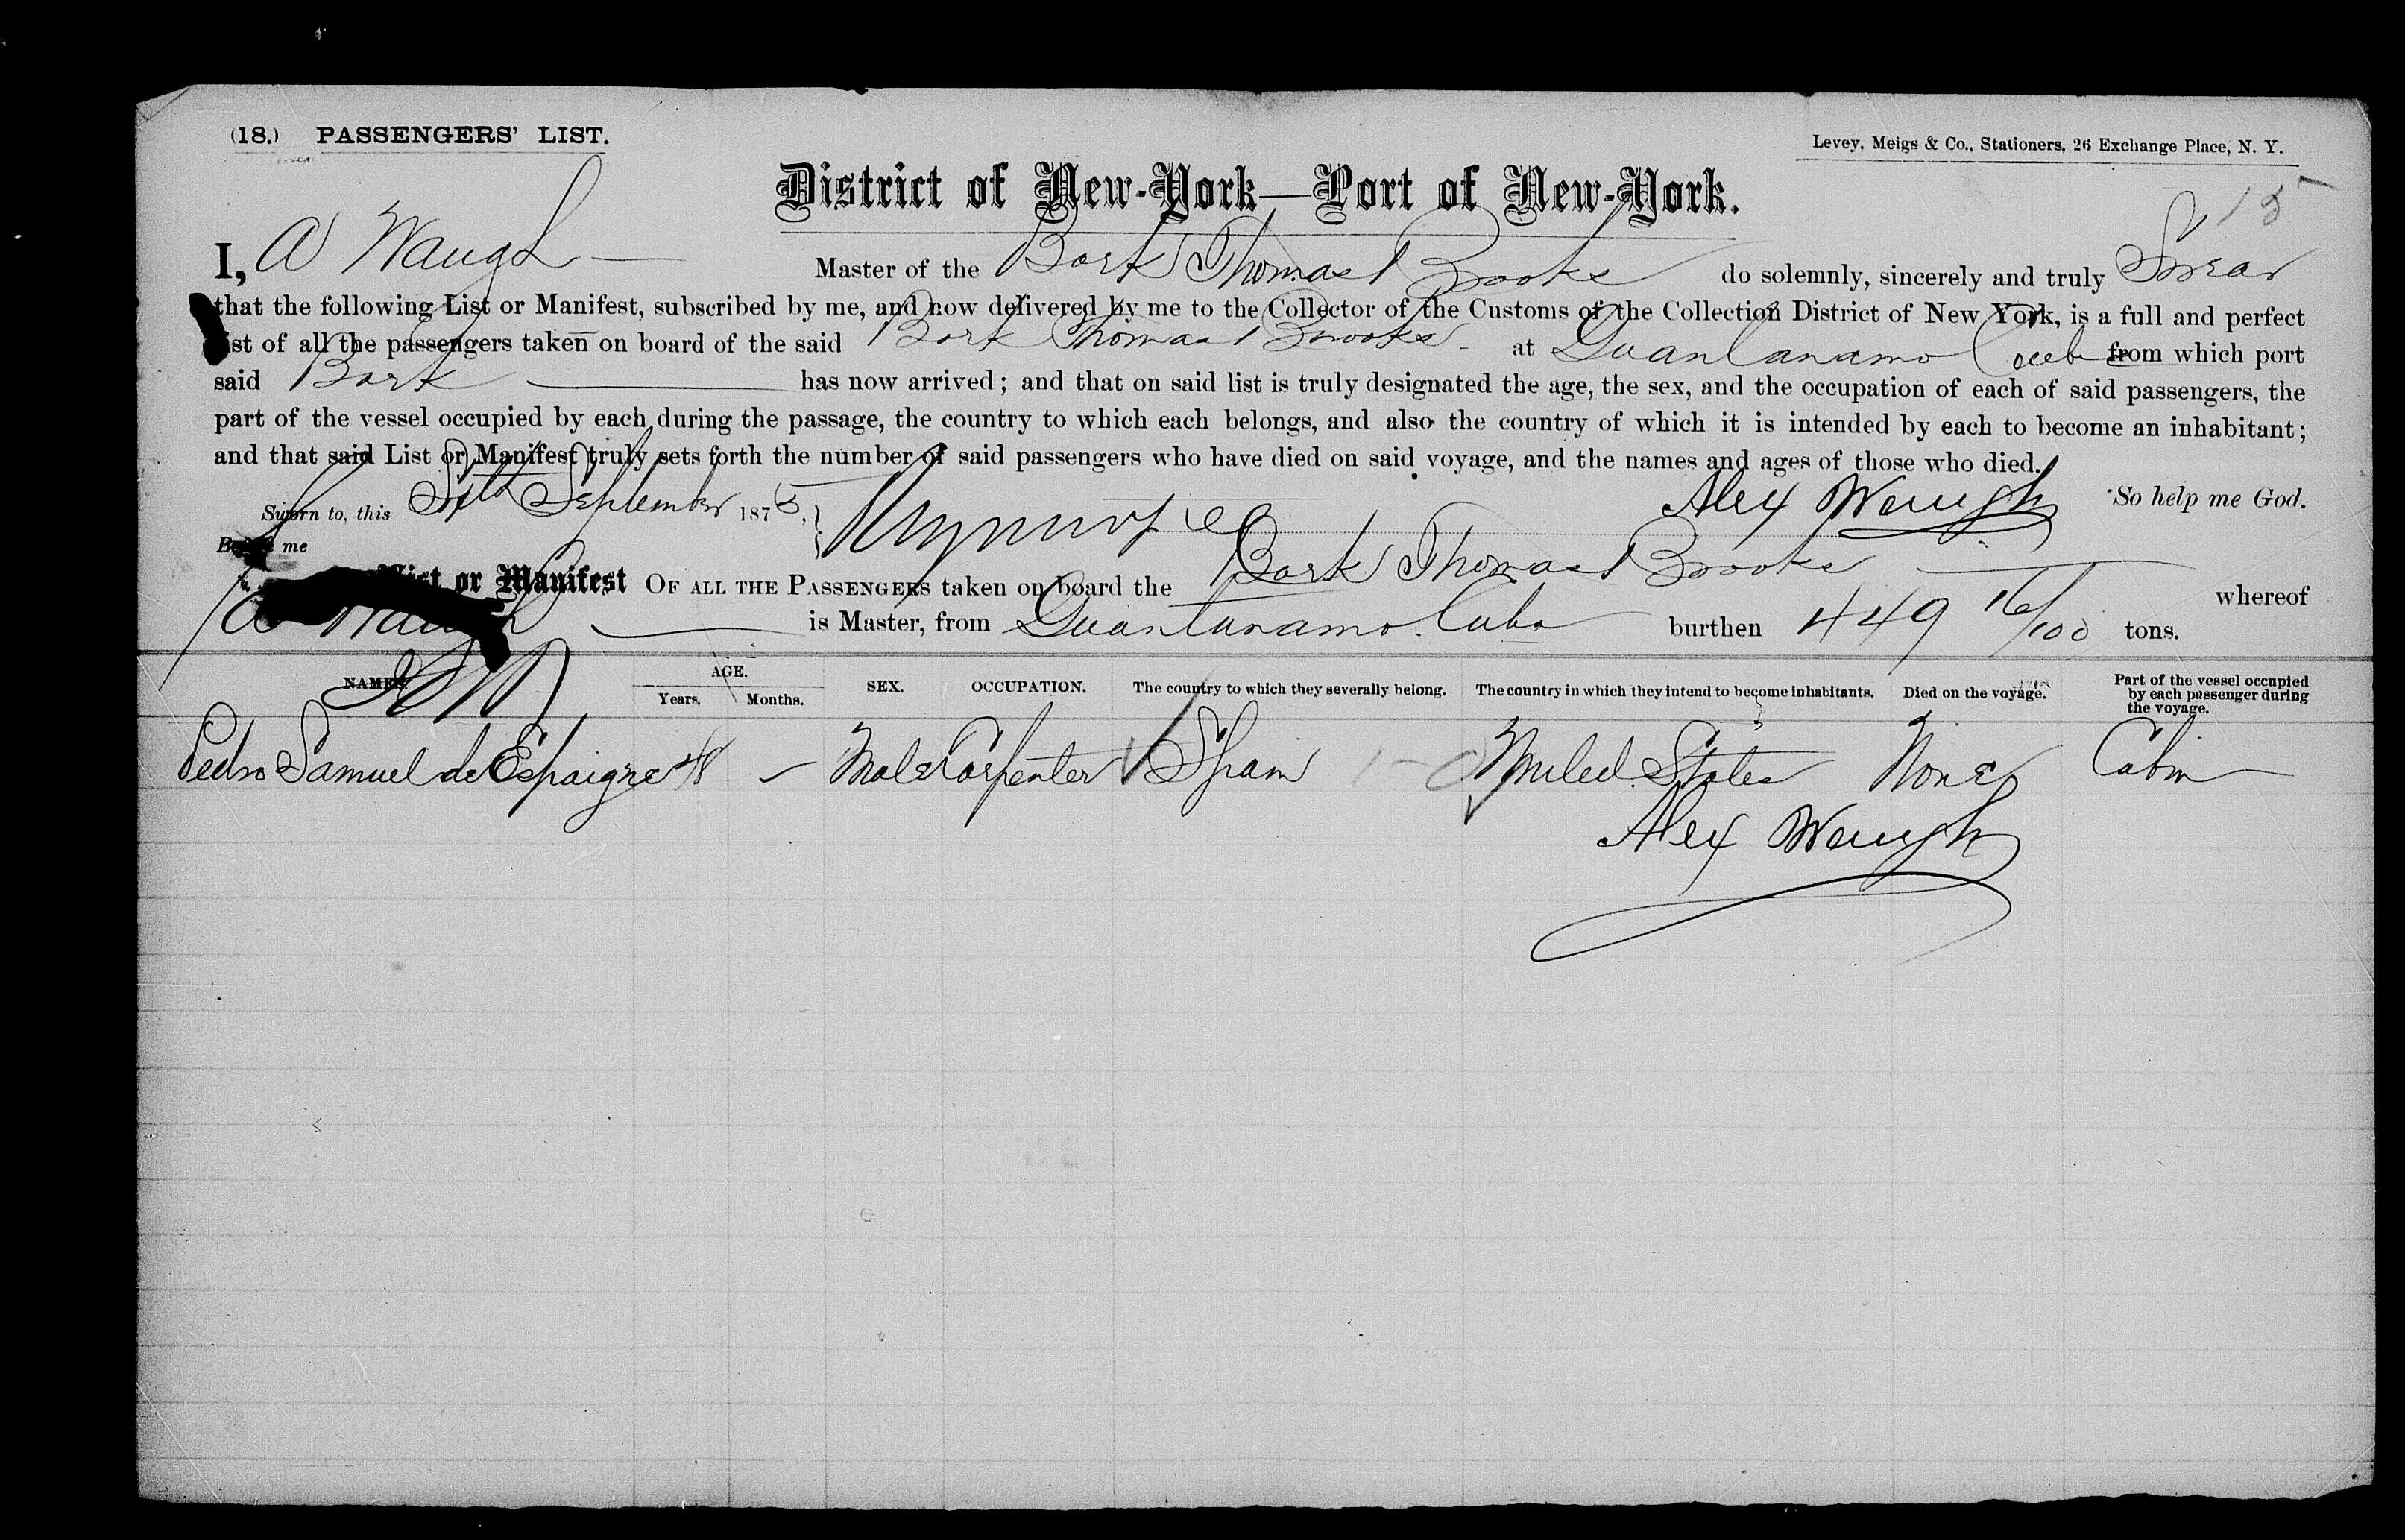 (18.) PASSENGERS' LIST.
Levey, Meigs & Co., Stationers, 26 Exchange Place, N. Y.
District of New-York—Port of New-York.
I, A Waugh Master of the Bark Thomas Brooks do solemnly, sincerely and truly Swear
that the following List or Manifest, subscribed by me, and now delivered by me to the Collector of the Customs of the Collection District of New York, is a full and perfect
list of all the passengers taken on board of the said Bark Thomas Brooks at Guantanamo Cuba from which port
said Bark has now arrived; and that on said list is truly designated the age, the sex, and the occupation of each of said passengers, the
part of the vessel occupied by each during the passage, the country to which each belongs, and also the country of which it is intended by each to become an inhabitant;
and that said List or Manifest truly sets forth the number of said passengers who have died on said voyage, and the names and ages of those who died.
Sworn to, this September 187 Alex Waugh So help me God.
Before me
List or Manifest OF ALL THE PASSENGERS taken on board the Bark Thomas Brooks whereof
A Waugh is Master, from Guantanamo Cuba burthen 449 16/100 tons.
NAMES. AGE. Years. Months. SEX. OCCUPATION. The country to which they severally belong. The country in which they intend to become inhabitants. Died on the voyage. Part of the vessel occupied by each passenger during the voyage.
Pedro Samuel de Espaigne 48 — Male Carpenter Spain United States None Cabin
Alex Waugh